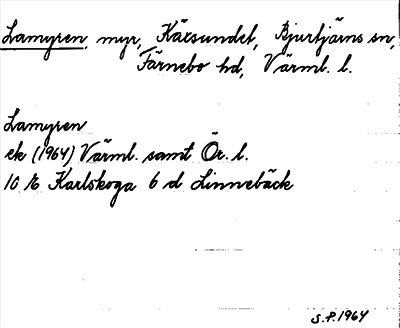 Lamyren, myr, Kärsundet, Bjurtjärns sn,
Färnebo hd, Värml. l.
Lamyren
ek (1964) Värml. samt Ör. l.
10 E Karlskoga 6 d Linnebäck
S.P. 1964